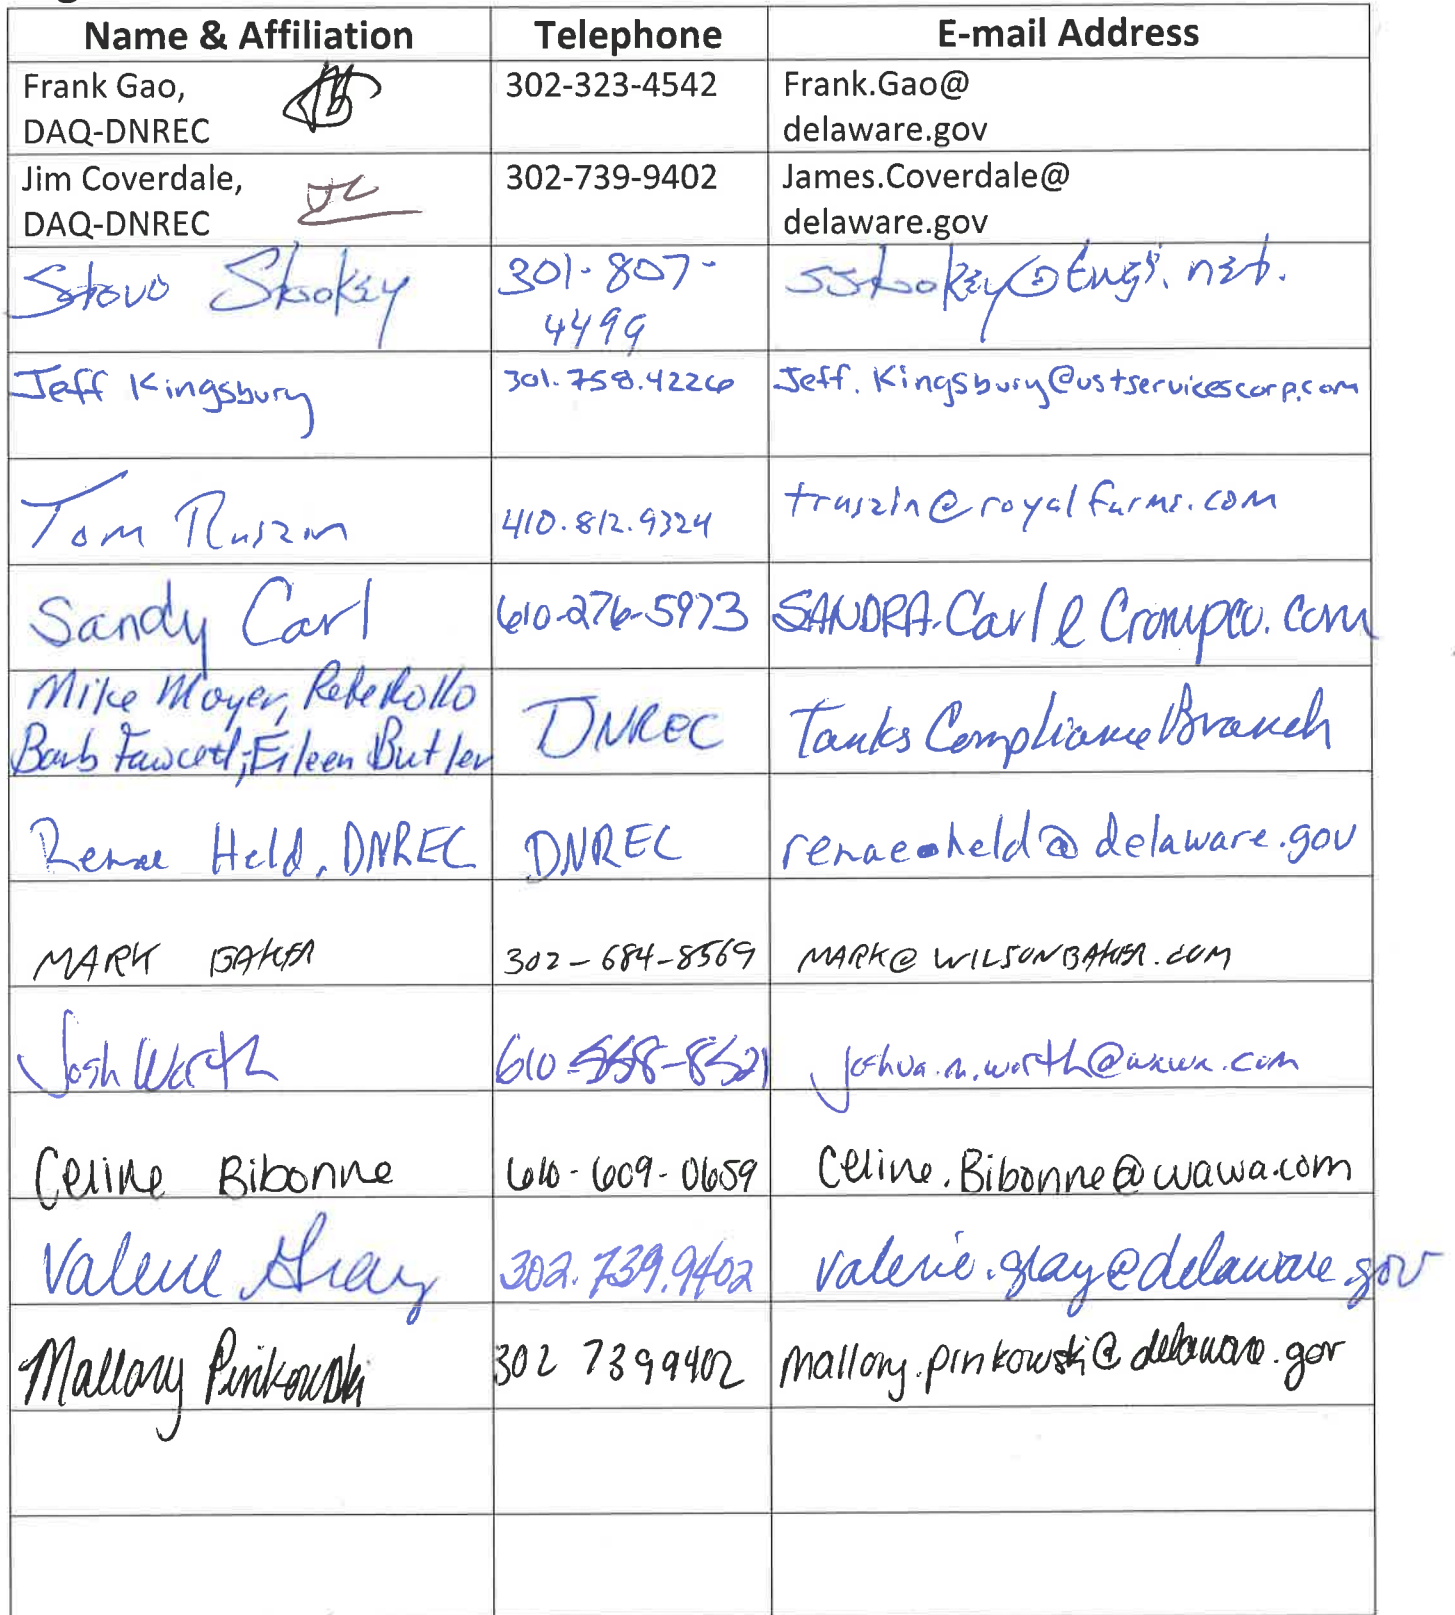 Name & Affiliation Telephone E-mail Address
Frank Gao, 302-323-4542 Frank.Gao@
DAQ-DNREC delaware.gov
Jim Coverdale, JC 302-739-9402 James.Coverdale@
DAQ-DNREC delaware.gov
Skokey 301-807-
4499
Jeff Kingsbury 301.758.4226 Jeff.Kingsbury@ustservicescorp.com
Tom Ruszin 410.812.9324 truszin@royalfarms.com
Sandy Carl 610-276-5973 SANDRA.Carl@Crompco.com
Mike Moyer, Peter Rollo
Barb Fawcett, Eileen Butler DNREC Tanks Compliance Branch
Renae Held, DNREC DNREC renae.held@delaware.gov
MARK BAKER 302-684-8569 MARK@WILSONBAKER.COM
Josh Worth 610 joshua.m.worth@wawa.com
Celine Bibonne 610-609-0659 Celine.Bibonne@wawa.com
Valerie Gray 302.739.9402 valerie.gray@delaware.gov
Mallory Pinkowski 302 7399402 mallory.pinkowski@delaware.gov